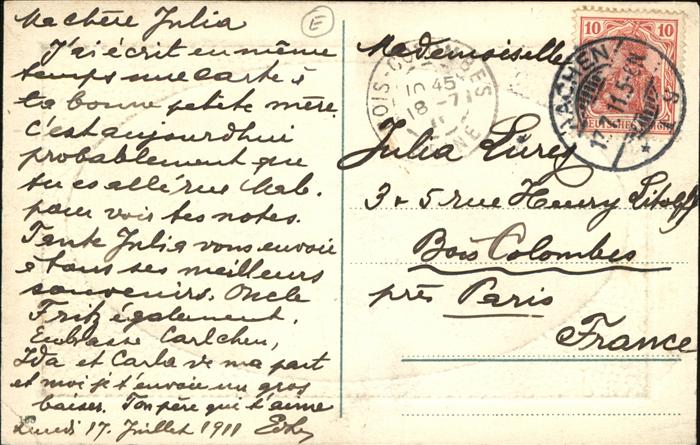 Ma chère Julia
J'ai écrit en même
temps une carte à
ta bonne petite mère.
c'est aujourdhui
probablement que
tu es allé rue
pour voir tes notes.
Tante Julia vous envoie
à tous ses meilleurs
souvenirs. Oncle
Fritz également.
Embrasse Carlchen,
Ida et Carla de ma part
et moi je t'envoie un gros
baiser. Ton père qui t'aime
Lundi 17. Juillet 1911
E
Mademoiselle
Julia
3 & 5 rue Henry Litolff
Bois Colombes
près Paris
France
10 10
DEUTSCHES REICH
AACHEN
17.7.11.5-6N
BOIS-COLOMBES
10 45
18 -7
11
SEINE